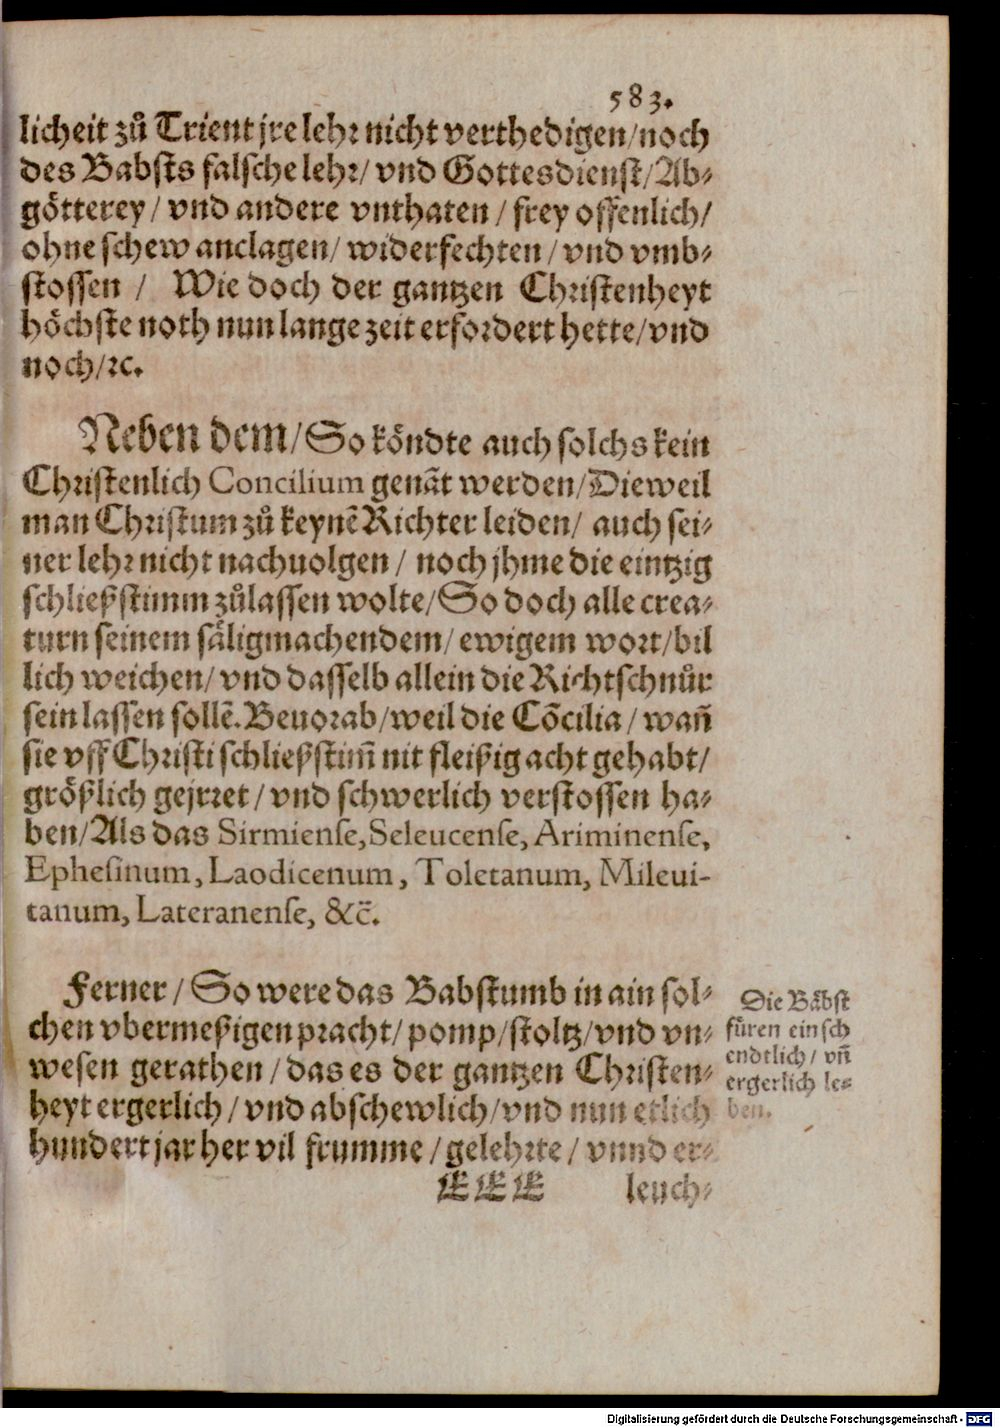 583.
licheit zů Trient jre lehr nicht verthedigen/noch
des Babsts falsche lehr/ vnd Gottesdienst/Ab-
götterey/ vnd andere vnthaten / frey offenlich/
ohne schew anclagen/ widerfechten/ vnd vmb-
stossen / Wie doch der gantzen Christenheyt
höchste noth nun lange zeit erfordert hette/vnd
noch/ꝛc.
Neben dem/So köndte auch solchs kein
Christenlich Concilium genāt werden/Dieweil
man Christum zů keynē Richter leiden/ auch sei-
ner lehr nicht nachuolgen / noch jhme die eintzig
schließstimm zůlassen wolte/So doch alle crea-
turn seinem säligmachendem/ ewigem wort/bil
lich weichen/ vnd dasselb allein die Richtschnůr
sein lassen sollē. Beuorab/weil die Cōcilia/ wañ
sie vff Christi schließstim̃ nit fleißig acht gehabt/
größlich gejrret/ vnd schwerlich verstossen ha-
ben/Als das Sirmienſe,Seleucenſe, Ariminenſe,
Epheſinum, Laodicenum, Toletanum, Mileui-
tanum, Lateranenſe, &c̃.
Ferner/ So were das Babstumb in ain sol-
chen vbermeßigen pracht/ pomp/stoltz/vnd vn-
wesen gerathen/das es der gantzen Christen-
heyt ergerlich/ vnd abschewlich/vnd nun etlich
hundert jar her vil frumme/gelehrte/ vnnd er-
EEE leuch-
Die Bäbst
füren ein sch
endtlich/ vñ
ergerlich le-
ben.
Digitalisierung gefördert durch die Deutsche Forschungsgemeinschaft - DFG